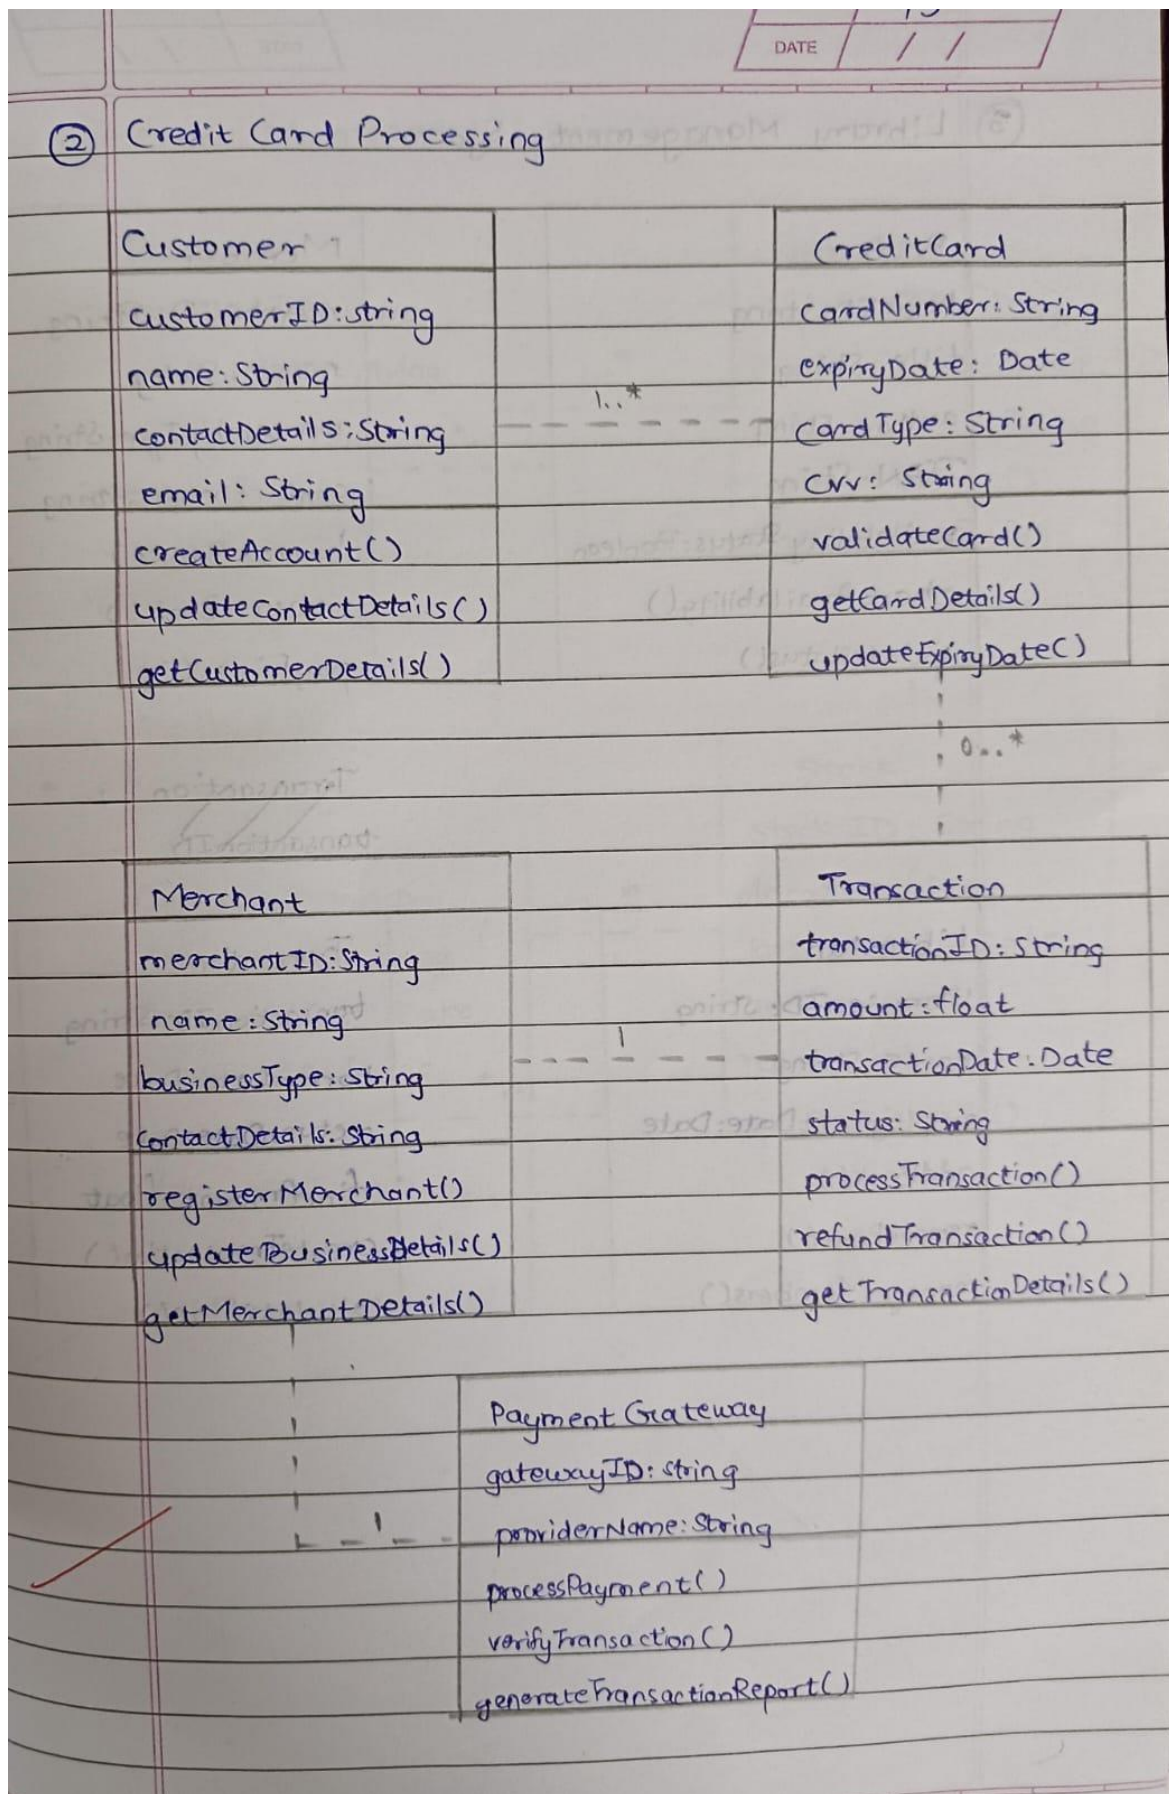 DATE / /
② Credit Card Processing
Customer
customerID: string
name: String
contactDetails: String
email: String
createAccount()
updateContactDetails()
getCustomerDetails()
1..*
CreditCard
cardNumber: String
expiryDate: Date
cardType: String
cvv: String
validateCard()
getCardDetails()
updateExpiryDate()
0..*
Merchant
merchantID: String
name: String
businessType: String
contactDetails: String
registerMerchant()
updateBusinessDetails()
getMerchantDetails()
1
Transaction
transactionID: String
amount: float
transactionDate: Date
status: String
processTransaction()
refundTransaction()
getTransactionDetails()
1
Payment Gateway
gatewayID: string
providerName: String
processPayment()
verifyTransaction()
generateTransactionReport()